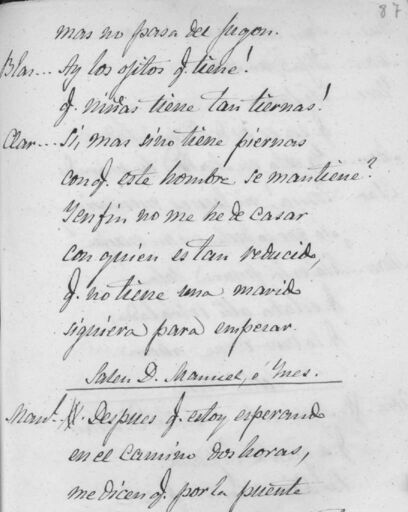 87
mas no pasa del jugon.
Blas... Ay los ojitos q. tiene!
q. niñas tiene tan tiernas!
Clar... Si, mas sino tiene piernas
con q. este hombre se mantiene?
Yenfin no me he de casar
con quien es tan reducido,
q. no tiene una marido
siquiera para empezar.
Salen D. Manuel, é Ynes.
Man.l Despues q. estoy esperando
en el camino dos horas,
me dicen q. por la puente